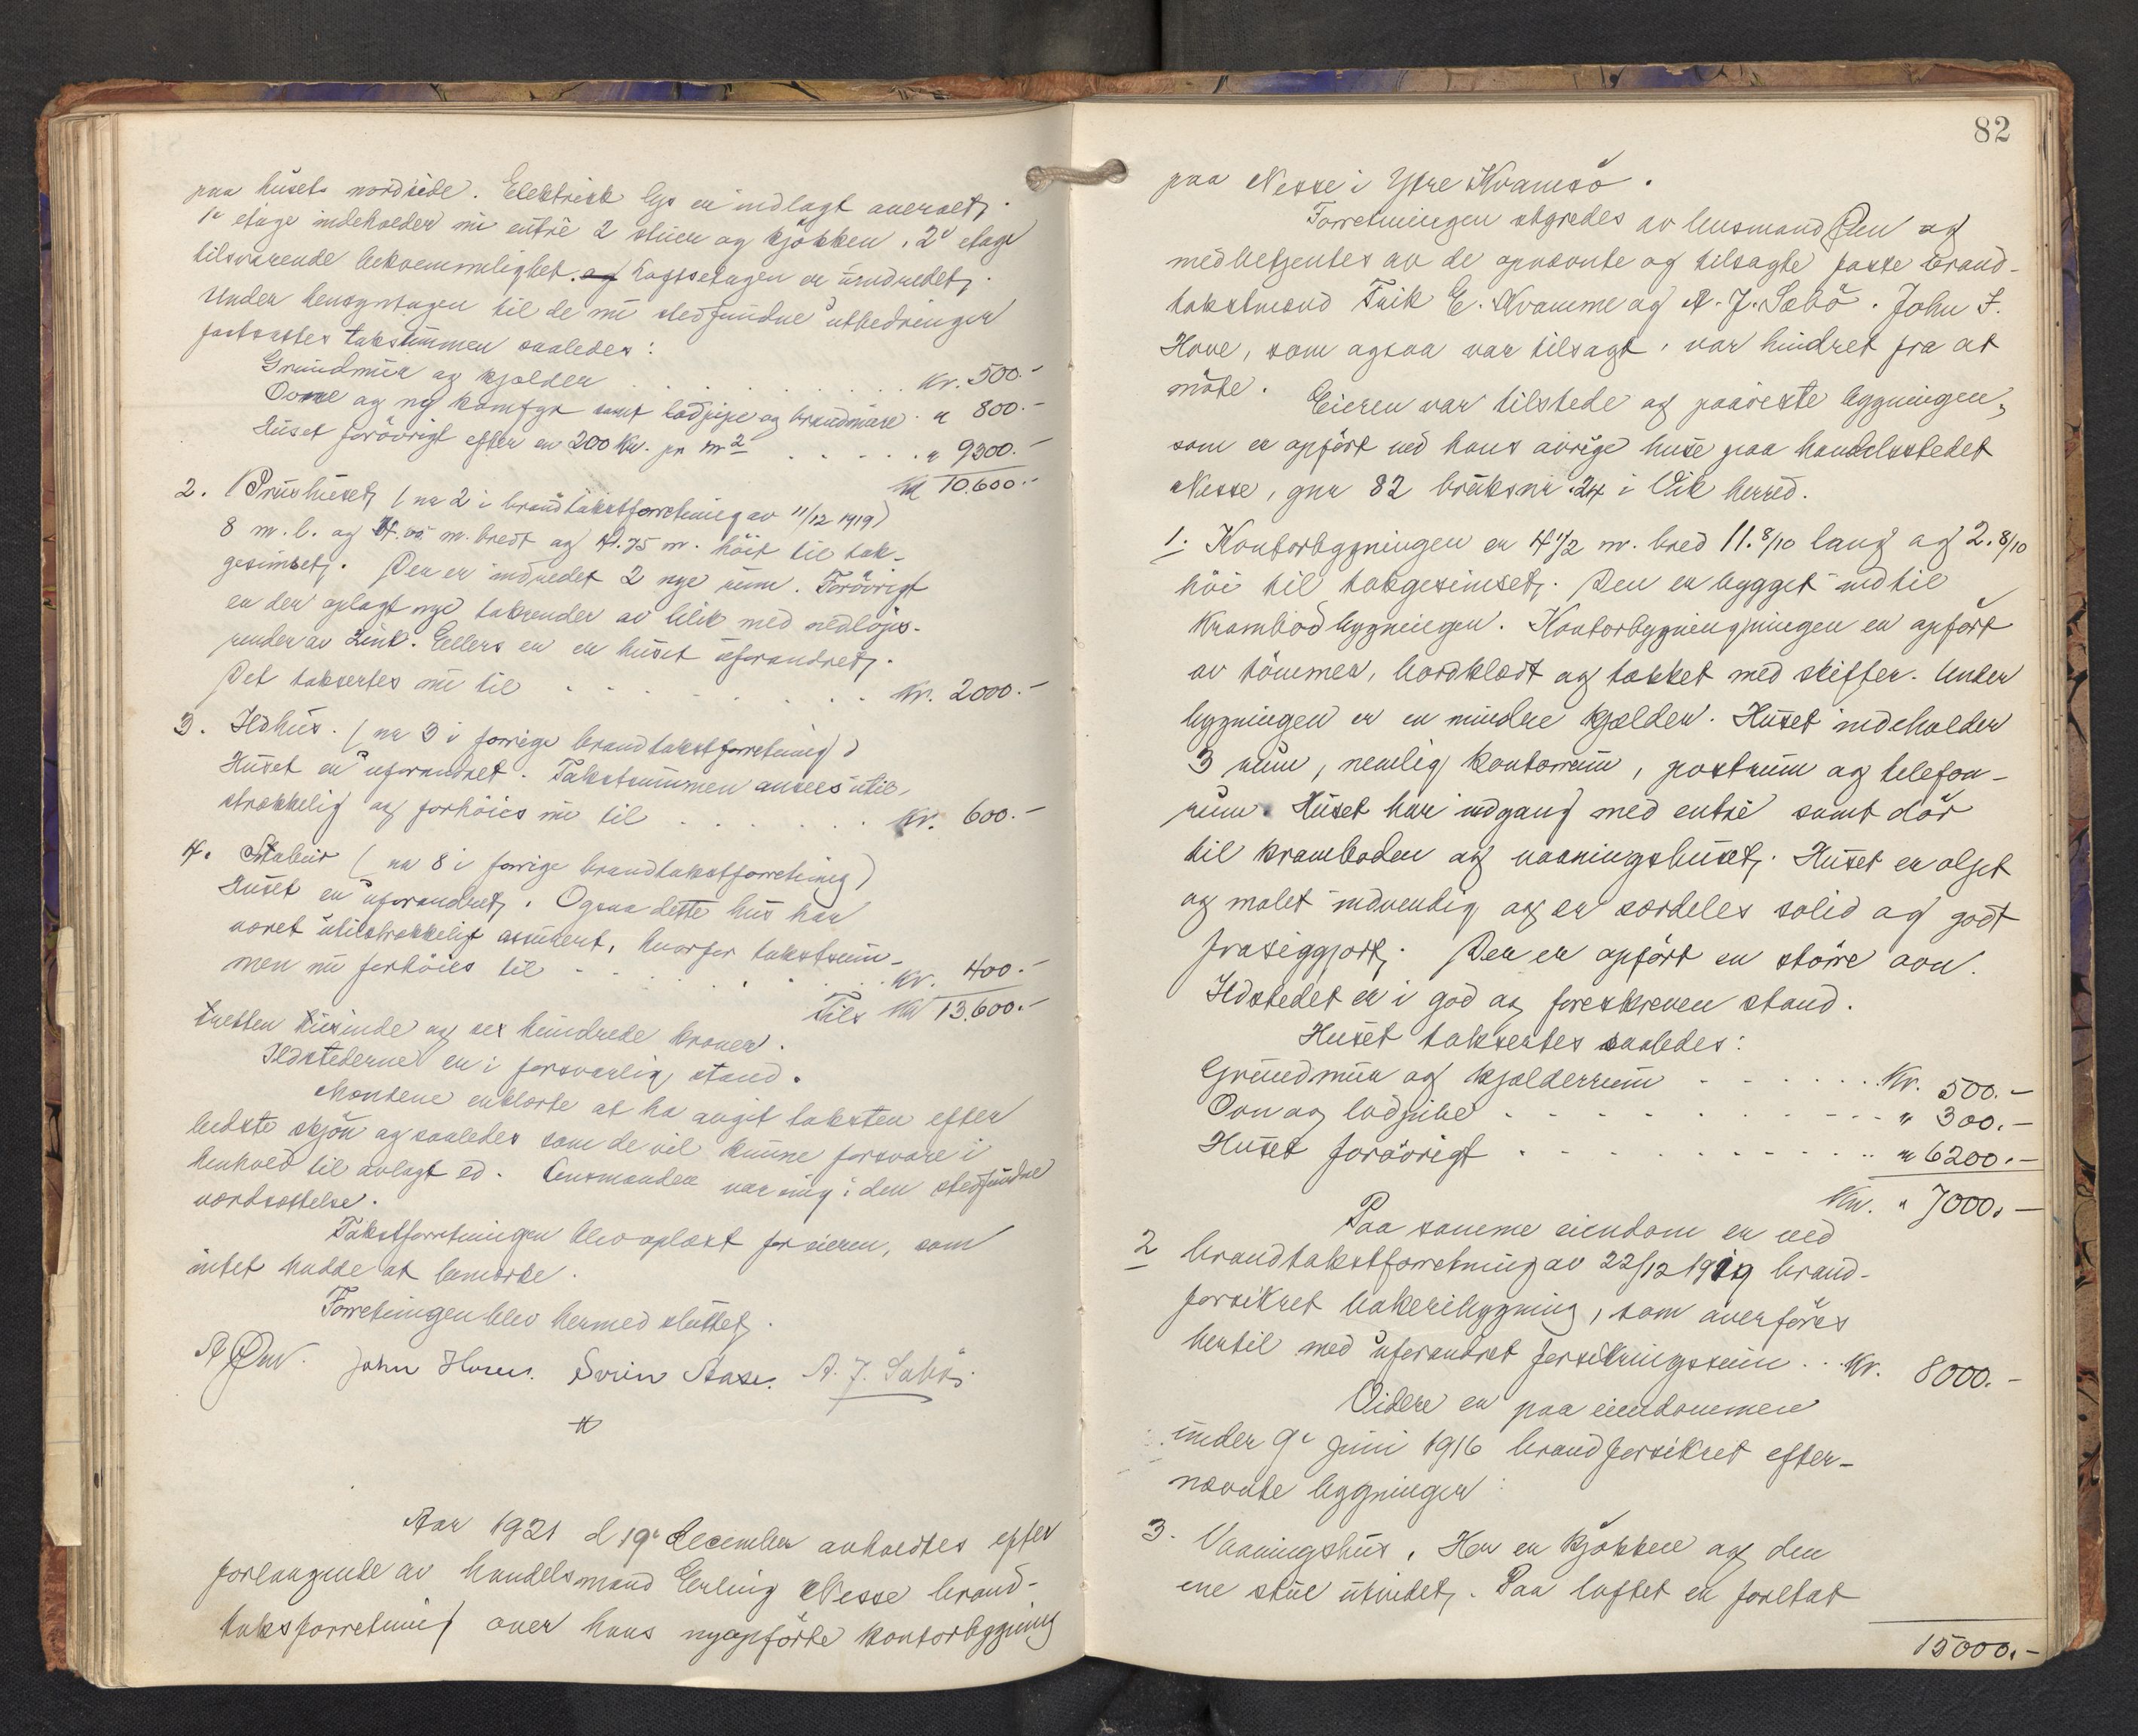 paa husets nordside. Elektrisk lys er indlagt overalt.
1e etage indeholder nu entré 2 stuer og kjökken. 2e etage
tilsvarende bekvemmelighet. og Loftsetagen er uindredet.
Under hensyntagen til de nu stedfundne utbedringer
fastsattes takstsummen saaledes:
Grundmur og kjælder . . . . . . . . . kr. 500.-
Ovne og ny komfyr samt lodpipe og brandmure . " 800.-
Huset forövrigt efter en 200 kr. pr m2 . . . . . " 9300.-
Kr 10.600.-
2. Prushuset, (nr 2 i brandtakstforretning av 11/12 1919)
8 m. l. og m. bredt og 4.75 m. höit til tak-
gesimset. Der er indredet 2 nye rum. Forövrigt
er der oplagt nye takrender av blik med nedlöps-
render av Zink. Ellers er er huset uforandret.
Det taksertes nu til . . . . . . . . kr. 2000.-
3. Ildhus. (nr 3 i forrige brandtakstforretning)
Huset er uforandret. Takstsummen ansees util-
strækkelig og forhöies nu til . . . . . . kr. 600.-
4. Stabur (nr 8 i forrige brandtakstforretning)
Huset er uforandret. Ogsaa dette hus har
været utilstrækkelig assurert, hvorfor takstsum-
men nu forhöies til . . . . . . . kr. 400.-
Tils kr 13.600.-
tretten tusinde og sex hundrede kroner.
Ildstederne er i forsvarlig stand.
Mændene erklærte at ha avgit taksten efter
bedste skjön og saaledes som de vil kunne forsvare i
henhold til avlagt ed. Lensmanden var enig i den stedfundne
værdsættelse.
Takstforretningen blev oplæst for eieren, som
intet hadde at bemærke.
Forretningen blev hermed sluttet.
A Øen. John Hove. Svein Aase. A. J. Sæbö.
Aar 1921 d 19e december avholdtes efter
forlangende av handelsmand Erling Nesse brand-
taksforretning over hans nyopförte kontorbygning
82
paa Nesse i Ytre Kvamsö.
Forretningen styredes av lensmand Øen og
medbetjentes av de opnævnte og tilsagte faste brand-
takstmænd Erik E. Kvamme og A. J. Sæbö. John J.
Hove, som ogsaa var tilsagt, var hindret fra at
möte. Eieren var tilstede og paaviste bygningen,
som er opfört ved hans övrige huse paa handelsstedet
Nesse, gnr 82 bruksnr. 24 i Vik herred.
1. Kontorbygningen er 4 1/2 m. bred 11.8/10 lang og 2.8/10
höi til takgesimset. Den er bygget ind til
Krambodbygningen. Kontorbygningningen er opfört
av tömmer, bordklædt og tækket med skiffer. Under
bygningen er en mindre kjælder. Huset indeholder
3 rum, nemlig kontorrum, postrum og telefon-
rum. Huset har indgang med entré samt dör
til kramboden og vaaningshuset. Huset er oljet
og malet indvendig og er særdeles solid og godt
fraseggjort. Der er opfört en större ovn.
Ildstedet er i god og foreskreven stand.
Huset taksertes saaledes:
Grundmur og kjælderrum . . . . . . Kr. 500.-
Ovn og lodpibe . . . . . . . . . " 300.-
Huset forövrigt . . . . . . . . . " 6200.-
Kr. " 7000.-
Paa samme eiendom er ved
2 brandtakstforretning av 22/12 1919 brand-
forsikret bakeribygning, som överföres
hertil med uforandret forsikringssum . . Kr. 8000.-
Videre er paa eiendommen
under 9e juni 1916 brandforsikret efter-
nævnte bygninger:
3. Vaaningshus. Her er kjökken og den
ene stue utvidet. Paa loftet er foretat
15000.-